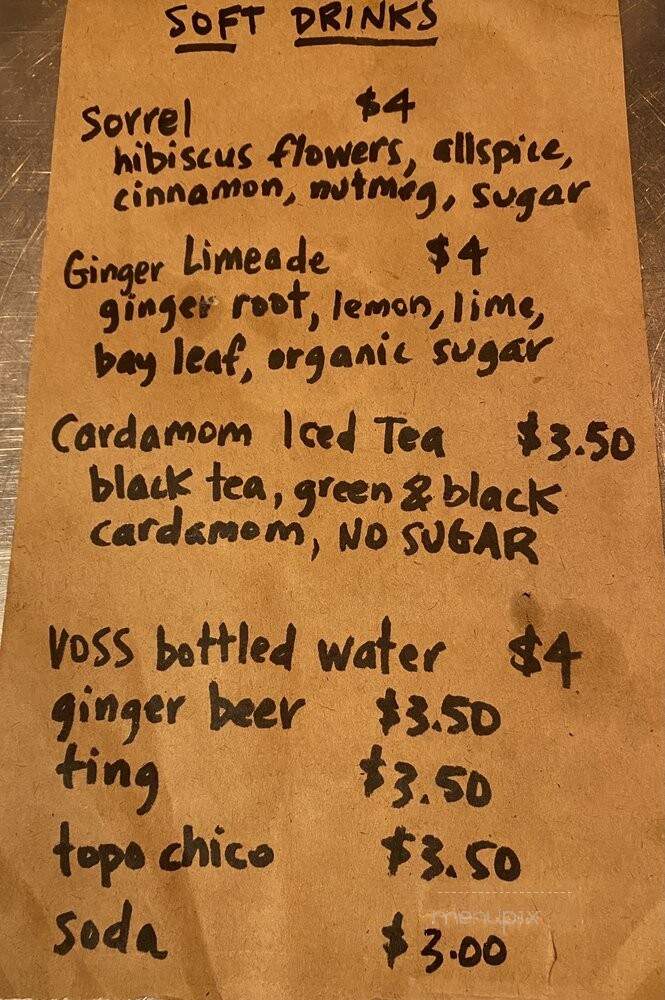 SOFT DRINKS
Sorrel $4
hibiscus flowers, allspice,
cinnamon, nutmeg, sugar
Ginger Limeade $4
ginger root, lemon, lime,
bay leaf, organic sugar
Cardamom Iced Tea $3.50
black tea, green & black
cardamom, NO SUGAR
VOSS bottled water $4
ginger beer $3.50
ting $3.50
topo chico $3.50
menupix
soda $3.00